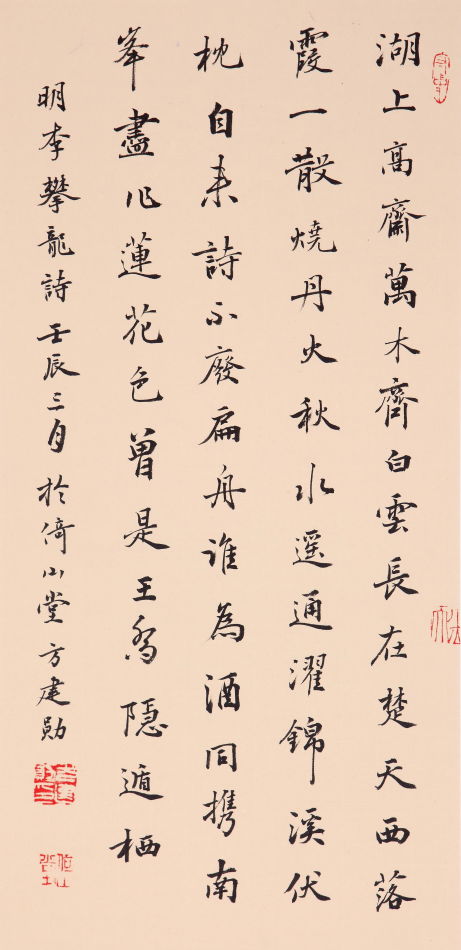 湖上高齋萬木齊白雲長在楚天西落
霞一散燒丹火秋水遥通濯錦溪伏
枕自来詩不廢扁舟誰為酒同携南
峯盡作蓮花色曾是王喬隱遁栖
明李攀龍詩壬辰三月於倚山堂方建勛